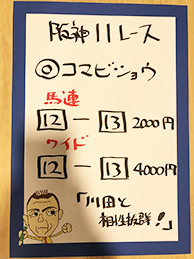 阪神11レース
◎コマビショウ
馬連
12－13 2000円
ワイド
12－13 4000円
「川田と
相性抜群!」